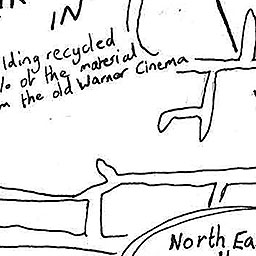 IN
lding recycled
% of the material
m the old Warner Cinema
North Ea